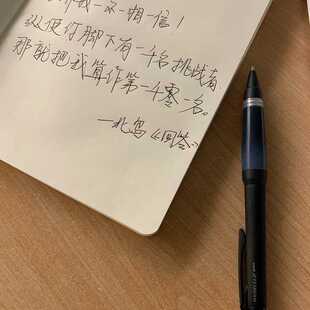 我一不一相一信！
纵使你脚下有一千名挑战者
那就把我算作第一千零一名。
——北岛《回答》